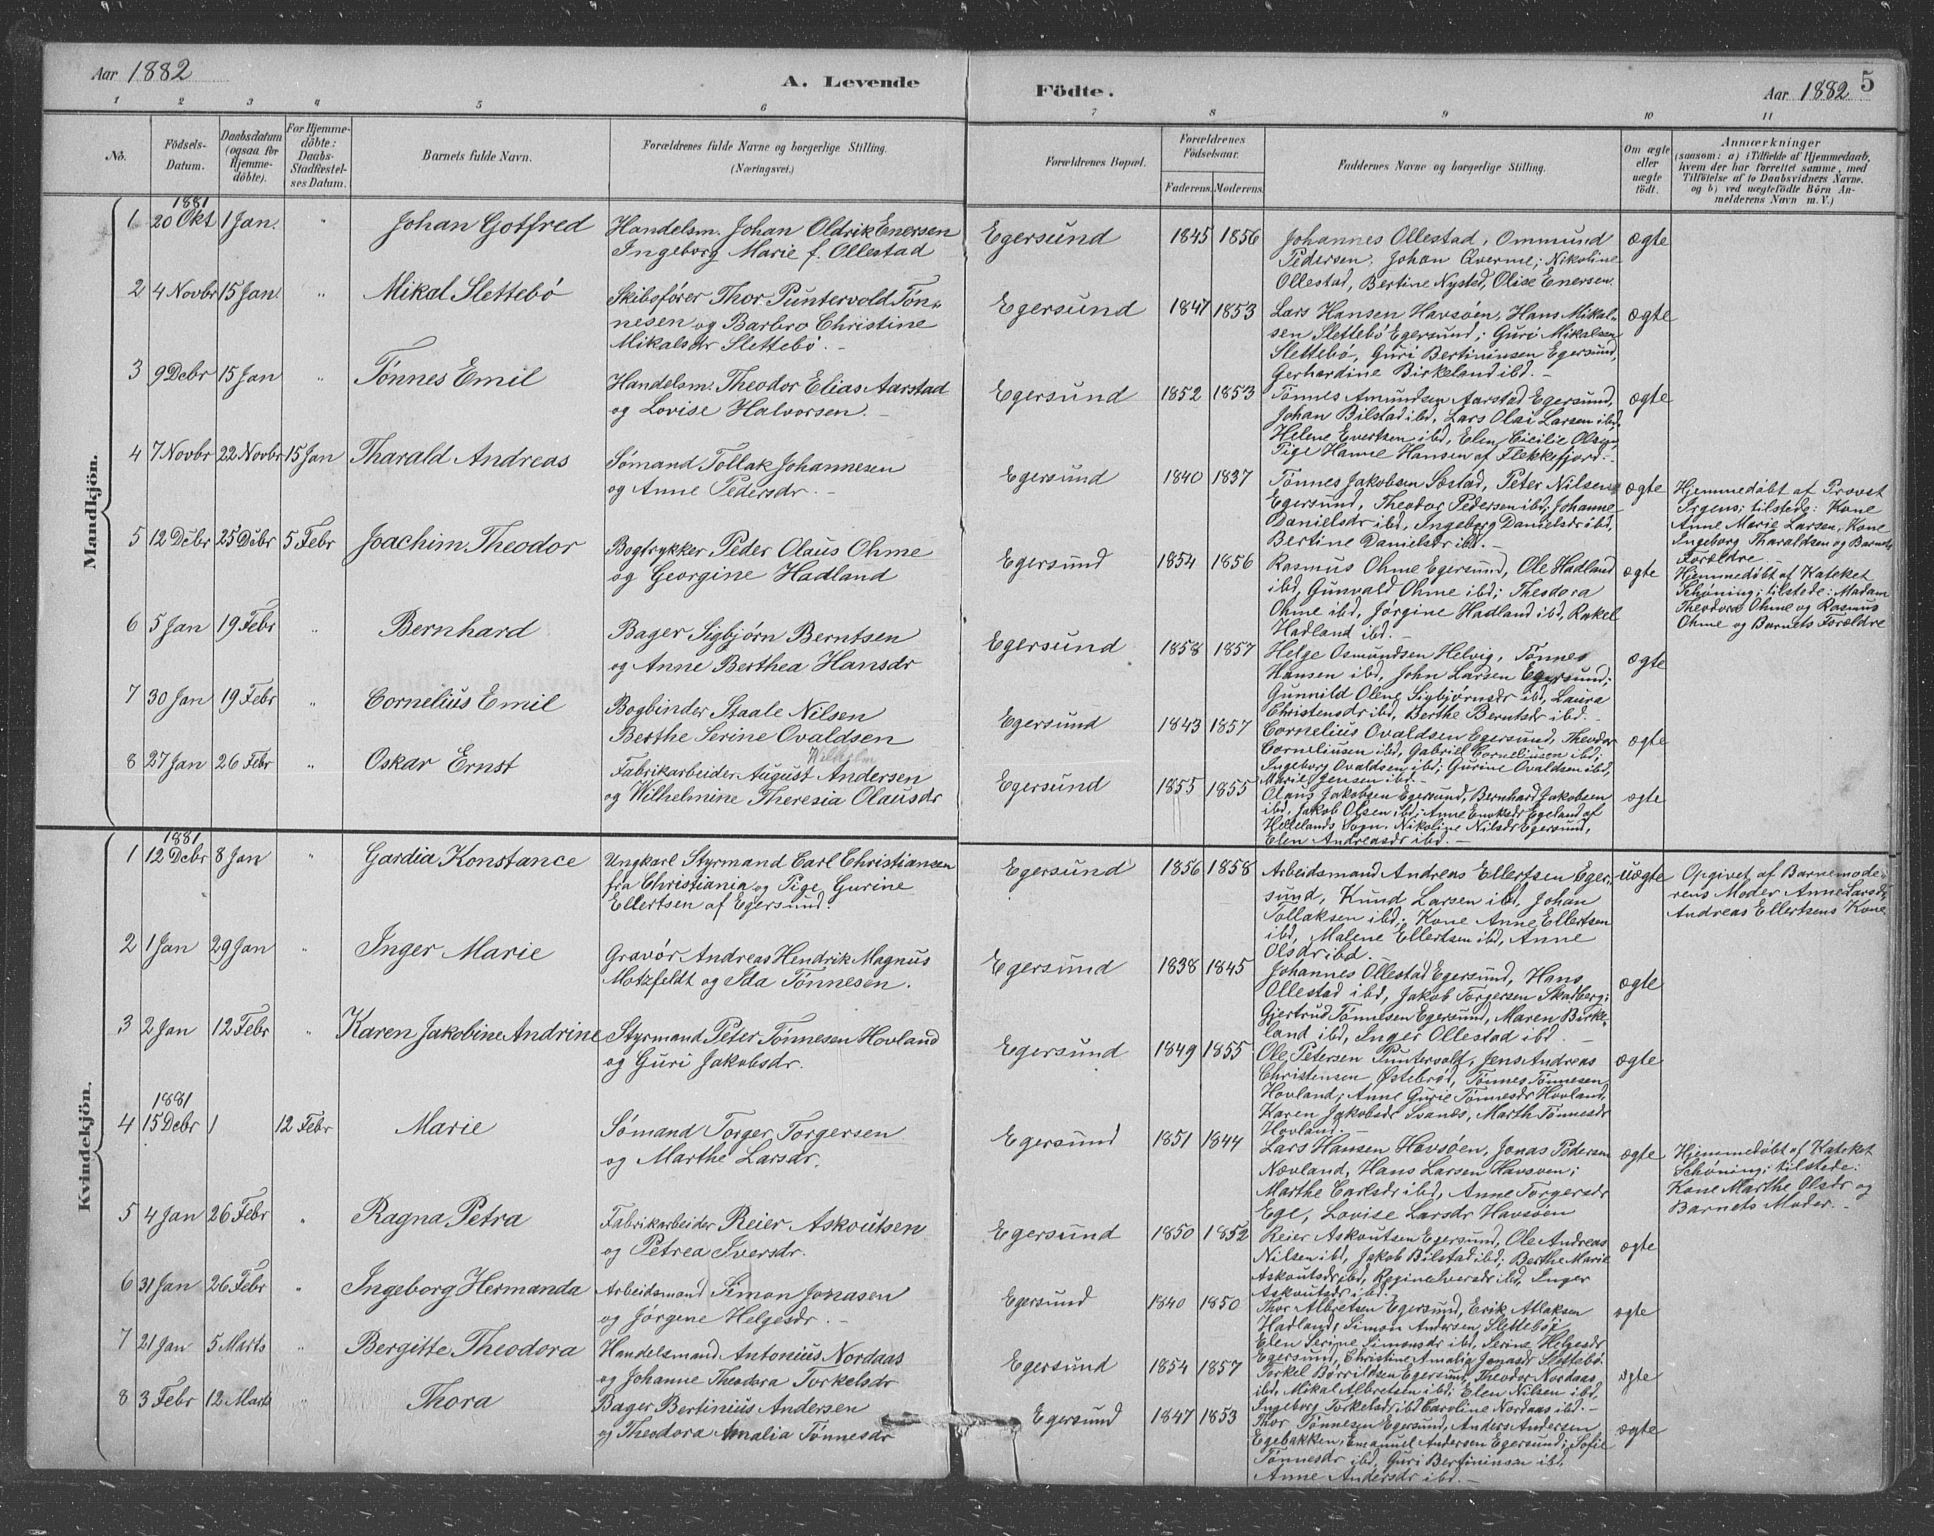 Aar 1882
A. Levende
Födte.
Aar 1882
5
1 2 3 4 5 6 7 8 9 10 11
No.
Födsels-
Datum.
Daabsdatum
(ogsaa for
Hjemme-
döbte).
For Hjemme-
döbte:
Daabs-
Stadfæstel-
ses Datum.
Barnets fulde Navn.
Forældrenes fulde Navne og borgerlige Stilling.
(Næringsvei.)
Forældrenes Bopæl.
Forældrenes
Födselsaar.
Faderens. Moderens.
Faddernes Navne og borgerlige Stilling.
Om ægte
eller
uægte
födt.
Anmærkninger
(saasom: a) i Tilfælde af Hjemmedaab,
hvem der har forrettet samme, med
Tilföielse af to Daabsvidners Navne.
og b) ved uægtefödte Börn An-
melderens Navn m. V.)
Mandkjön.
1881
1 20 Okt 1 Jan. " Johan Gotfred
Handelsm. Johan Oldrik Enersen
Ingeborg Marie f. Ollestad
Egersund 1845 1856
Johannes Ollestad, Ommund
Pedersen, Johan Qverme; Nikoline
Ollestad, Bertine Nysted, Olise Enersen.
ægte
2 4 Novbr 15 Jan. " Mikal Slettebö
Skibsfører Thor Puntervold Tøn-
nesen og Barbro Christine
Mikalsdr Slettebö. -
Egersund 1847 1853
Lars Hansen Havsøen, Hans Mikal-
sen Slettebö Egersund; Guri Mikalsen
Slettebö, Guri Bertininsen Egersund,
Gerhardine Birkeland ibd. -
ægte
3 9 Debr 15 Jan " Tønnes Emil
Handelsm. Theodor Elias Aarstad
og Lovise Halvorsen. -
Egersund 1852 1853
Tønnes Amundsen Aarstad Egersund,
Johan Bilstad ibd, Lars Olai Larsen ibd,
Helene Evertsen ibd, Elen Cicilie Olsen,
Pige Hanne Hansen af Flekkefjord. -
ægte
4 7 Novbr 22 Novbr 15 Jan Tharald Andreas
Sømand Tollak Johannesen
og Anne Pedersdr. -
Egersund 1840 1837
Tønnes Jakobsen Søstad, Peter Nilsen
Egersund, Theodor Pedersen ibd, Johanne
Danielsdr ibd, Ingeborg Danielsdr ibd,
Bertine Danielsdr ibd. -
ægte
Hjemmedøbt af Provst
Irgens; tilstede: Kone
Anne Marie Larsen, Kone
Ingeborg Tharaldsen og Barnets
Forældre
5 12 Debr 25 Debr 5 Febr Joachim Theodor
Bogtrykker Peder Olaus Ohme
og Georgine Hadland
Egersund 1854 1856
Rasmus Ohme Egersund, Ole Hadland
ibd, Gunvald Ohme ibd; Theodora
Ohme ibd, Jørgine Hadland ibd, Rakel
Hadland ibd. -
ægte
Hjemmedøbt af Kateket
Schøning; tilstede: Madam
Theodora Ohme og Rasmus
Ohme og Barnets Forældre
6 5 Jan 19 Febr " Bernhard
Bager Sigbjørn Berntsen
og Anne Berthea Hansdr
Egersund 1858 1857
Helge Osmundsen Helvig, Tønnes
Hansen ibd, John Larsen Egersund;
Gunnild Olene Sigbjørnsdr ibd, Laura
Christensdr ibd, Berthe Berntsdr ibd. -
ægte
7 30 Jan 19 Febr " Cornelius Emil
Bogbinder Staale Nilsen
Berthe Serine Ovaldsen
Egersund 1843 1857
Cornelius Ovaldsen Egersund, Theodor
Corneliusen ibd, Gabriel Corneliusen ibd,
Ingeborg Ovaldsen ibd; Gurine Ovaldsen ibd,
Marie Jensen ibd. -
ægte
8 27 Jan 26 Febr " Oskar Ernst
Wilhelm
Fabrikarbeider August Andersen
og Wilhelmine Theresia Olausdr
Egersund 1855 1855
Olaus Jakobsen Egersund, Bernhard Jakobsen
ibd, Jakob Olsen ibd; Anne Enoksdr Egeland af
Hellelands Sogn. Nikoline Nilsdr Egersund,
Elen Andreasdr ibd. -
ægte
Kvindekjön.
1881
1 12 Debr 8 Jan " Gardia Konstance
Ungkarl Styrmand Carl Christiansen
fra Christiania og Pige Gurine
Ellertsen af Egersund.
Egersund 1856 1858
Arbeidsmand Andreas Ellertsen Eger-
sund, Knud Larsen ibd, Johan
Tollaksen ibd; Kone Anne Ellertsen
ibd, Malene Ellertsen ibd, Anne
Olsdr ibd.
uægte
Opgivet af Barnemode-
rens Moder Anne Larsdr,
Andreas Ellertsens Kone
2 1 Jan 29 Jan " Inger Marie
Gravør Andreas Hendrik Magnus
Motzfeldt og Ida Tønnesen.
Egersund 1838 1845
Johannes Ollestad Egersund, Hans
Ollestad ibd, Jakob Torgersen Skadberg;
Gjertrud Tønnesen Egersund, Maren Birke-
land ibd, Inger Ollestad ibd. -
ægte
3 2 Jan 12 Febr " Karen Jakobine Andrine
Styrmand Peter Tønnesen Hovland
og Guri Jakobsdr.
Egersund 1849 1855
Ole Petersen Puntervold, Jens Andreas
Christensen Østebrøt, Tønnes Tønnesen
Hovland; Anne Gurie Tønnesdr Hovland,
Karen Jakobsdr Svanes, Marth Tønnesdr
Hovland. -
ægte
1881
4 15 Debr 1 12 Febr Marie
Sømand Torger Torgersen
og Marthe Larsdr.
Egersund 1851 1844
Lars Hansen Havsøen, Jonas Pedersen
Nævland, Hans Larsen Havsøen;
Marthe Carlsdr ibd, Anne Torgersdr
Ege, Lovise Larsdr Havsøen
ægte
Hjemmedøbt af Kateket
Schøning; tilstede:
Kone Marthe Olsdr og
Barnets Moder. -
5 4 Jan 26 Febr " Ragna Petra
Fabrikarbeider Reier Askoutsen
og Petrea Iversdr.
Egersund 1850 1852
Reier Askoutsen Egersund, Ole Andreas
Nilsen ibd, Jakob Bilstad ibd; Berthe Marie
Askoutsdr ibd, Regine Iversdr ibd, Inger
Askoutsdr ibd.
ægte
6 31 Jan 26 Febr " Ingeborg Hermanda
Arbeidsmand Simon Jonasen
og Jørgene Helgesdr. -
Egersund 1840 1850
Thor Albretsen Egersund, Erik Atlaksen
Hadland, Simon Andersen Slettebö;
Elen Serine Simonsdr ibd, Serine Helgesdr
Egersund, Christine Amalia Jonasdr Slettebö.
ægte
7 21 Jan 5 Marts " Bergitte Theodora
Handelsmand Antonius Nordaas
og Johanne Theodora Torkelsdr
Egersund 1854 1857
Torkel Børrildsen Egersund, Theodor Nordaas
ibd, Mikal Albretsen ibd; Elen Nilsen ibd,
Ingeborg Torkelsdr ibd Caroline Nordaas ibd. -
ægte
8 3 Febr 12 Marts " Thora
Bager Bertinius Andersen
og Theodora Amalia Tönnesdr
Egersund 1847 1853
Thor Tönnesen Egersund, Anders Andersen
Egebakken, Emanuel Andersen Egersund; Sofie
Tönnesdr ibd, Guri Bertininsen ibd,
Anne Andersdr ibd. -
ægte